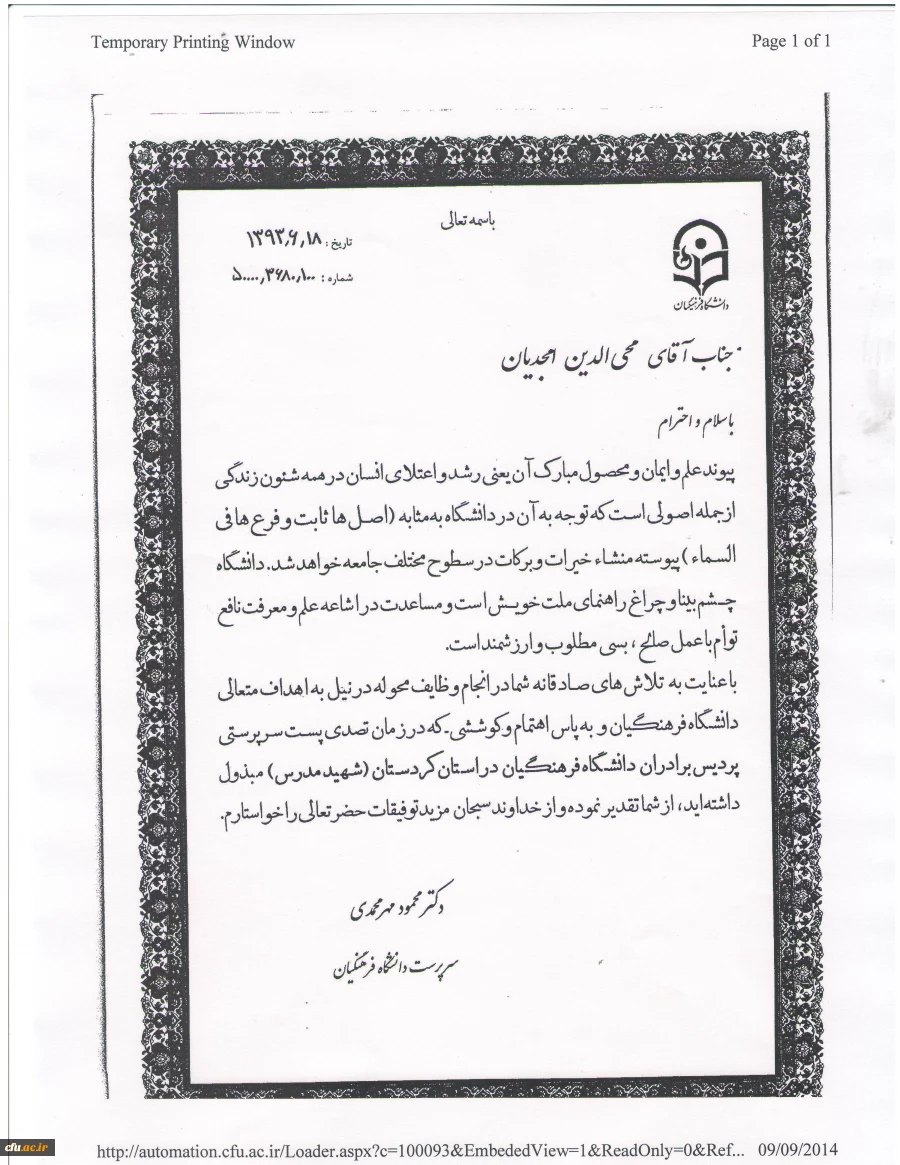 Temporary Printing Window
Page 1 of 1
باسمه تعالی
تاریخ : ۱۳۹۳,۶,۱۸
شماره : ۵۰۰۰۰,۳۶۸۰,۱۰۰
دانشگاه فرهنگیان
جناب آقای محی الدین امجدیان
با سلام و احترام
پیوند علم و ایمان و محصول مبارک آن یعنی رشد و اعتلای انسان در همه شئون زندگی
از جمله اصولی است که توجه به آن در دانشگاه به مثابه (اصل ها ثابت و فرع ها فی
السماء) پیوسته منشاء خیرات و برکات در سطوح مختلف جامعه خواهد شد. دانشگاه
چشم بینا و چراغ راهنمای ملت خویش است و مساعدت در اشاعه علم و معرفت نافع
توأم با عمل صالح ، بسی مطلوب و ارزشمند است.
با عنایت به تلاش های صادقانه شما در انجام وظایف محوله در نیل به اهداف متعالی
دانشگاه فرهنگیان و به پاس اهتمام و کوششی۔ که در زمان تصدی پست سرپرستی
پردیس برادران دانشگاه فرهنگیان در استان کردستان (شهید مدرس) مبذول
داشته‌اید، از شما تقدیر نموده و از خداوند سبحان مزید توفیقات حضرتعالی را خواستارم.
دکتر محمود مهرمحمدی
سرپرست دانشگاه فرهنگیان
http://automation.cfu.ac.ir/Loader.aspx?c=100093&EmbededView=1&ReadOnly=0&Ref... 09/09/2014
cfu.ac.ir